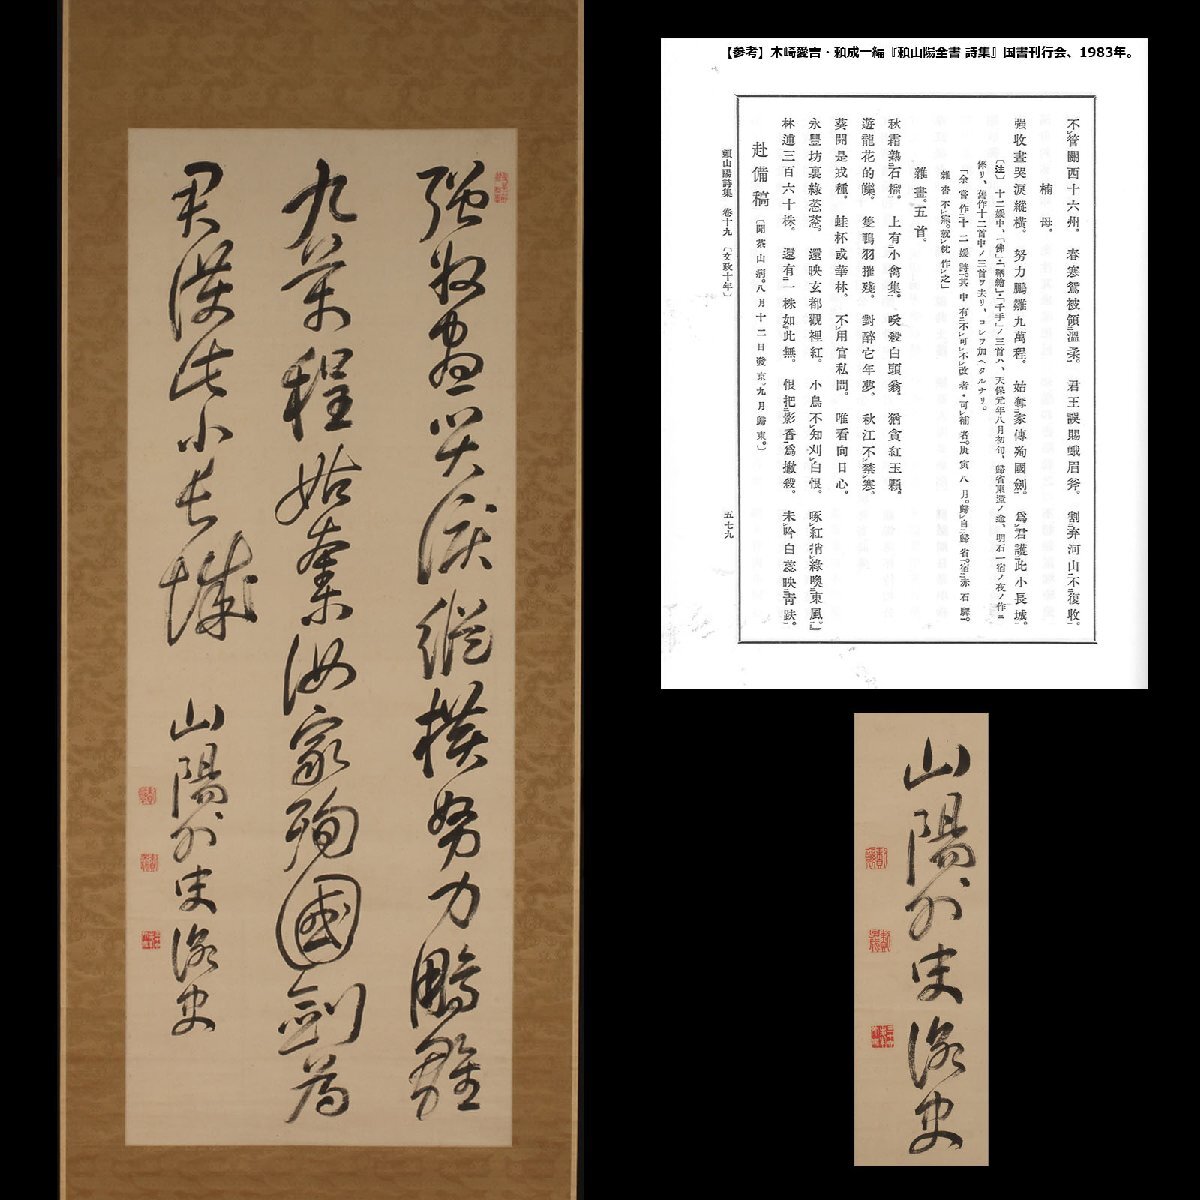 強收畫哭淚縱橫努力鵬雛
九萬程始奪汝家殉國劍為
君護此小長城
山陽外史詠史
【参考】木崎愛吉・頼成一編『頼山陽全書 詩集』国書刊行会、1983年。
不管關西十六州。 春寒鴛被領溫柔。 君王誤賜蛾眉斧。 割弃河山不復收。
楠母。
强收晝哭淚縱橫。 努力鵬雛九萬程。 始奪家傳殉國劍。 爲君護此小長城。
〔註〕十二媛中、「佛」・「鞆繪」・「千手」ノ三首ハ、天保元年八月初旬、歸省東還ノ途、明石一宿ノ夜ノ作ニ
係リ、舊作十二首中ノ三首ヲ去リ、コレヲ加ヘタルナリ。
「余嘗作十二媛詩。其中有不可不改者・可補者。庚寅八月。歸自歸省。宿赤石驛。
雜畫。五首。
秋霜熟石榴。 上有小禽集。 喫殺白頭翁。 猶貪紅玉顆。
遊龍花的皪。 隻鴨羽摧殘。 對醉它年夢。 秋江不禁寒。
葵開是戎種。 蛙杯或華林。 不用官私問。 唯看向日心。
永豐坊裏綠苾蒸。 還映玄都觀裡紅。 小鳥不知刈白恨。 啄紅捎綠喚東風。
林逋三百六十株。 還有一株如此無。 恨把影香爲撇殺。 未吟白蕊映靑趺。
赴備稿 〔閏紫山洞。八月十二日發京、九月歸東。〕
頼山陽詩集 卷十九 （文政十年）
五七九
山陽外史詠史